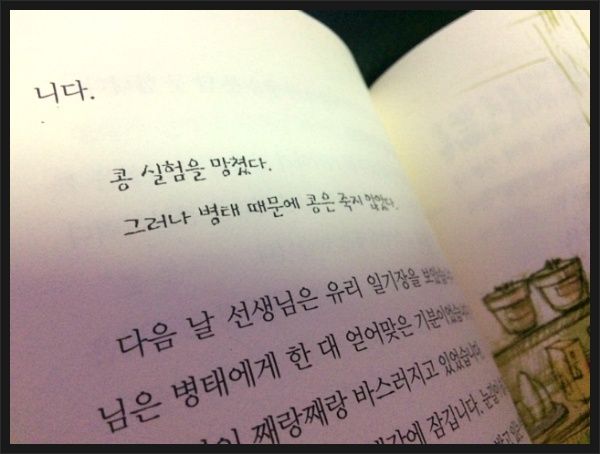 니다.
콩 실험을 망쳤다.
그러나 병태 때문에 콩은 죽지 않았다.
다음 날 선생님은 유리 일기장을 보았습니
님은 병태에게 한 대 얻어맞은 기분이었습니
째랑째랑 바스러지고 있었습니다.
잠깁니다. 눈